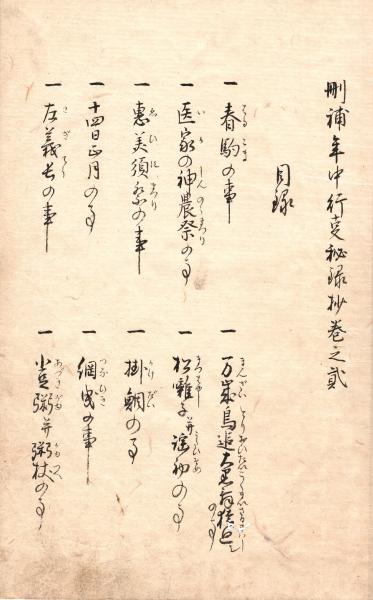 刪補年中行事秘録抄巻之貳
目録
一 春駒の事
一 万歳鳥追大黒舞猿廻しの事
一 医家の神農祭の事
一 松囃子并謡初の事
一 惠美須祭の事
一 掛鯛の事
一 十四日正月の事
一 綱曳の事
一 左義長の事
一 小豆粥并粥杖の事